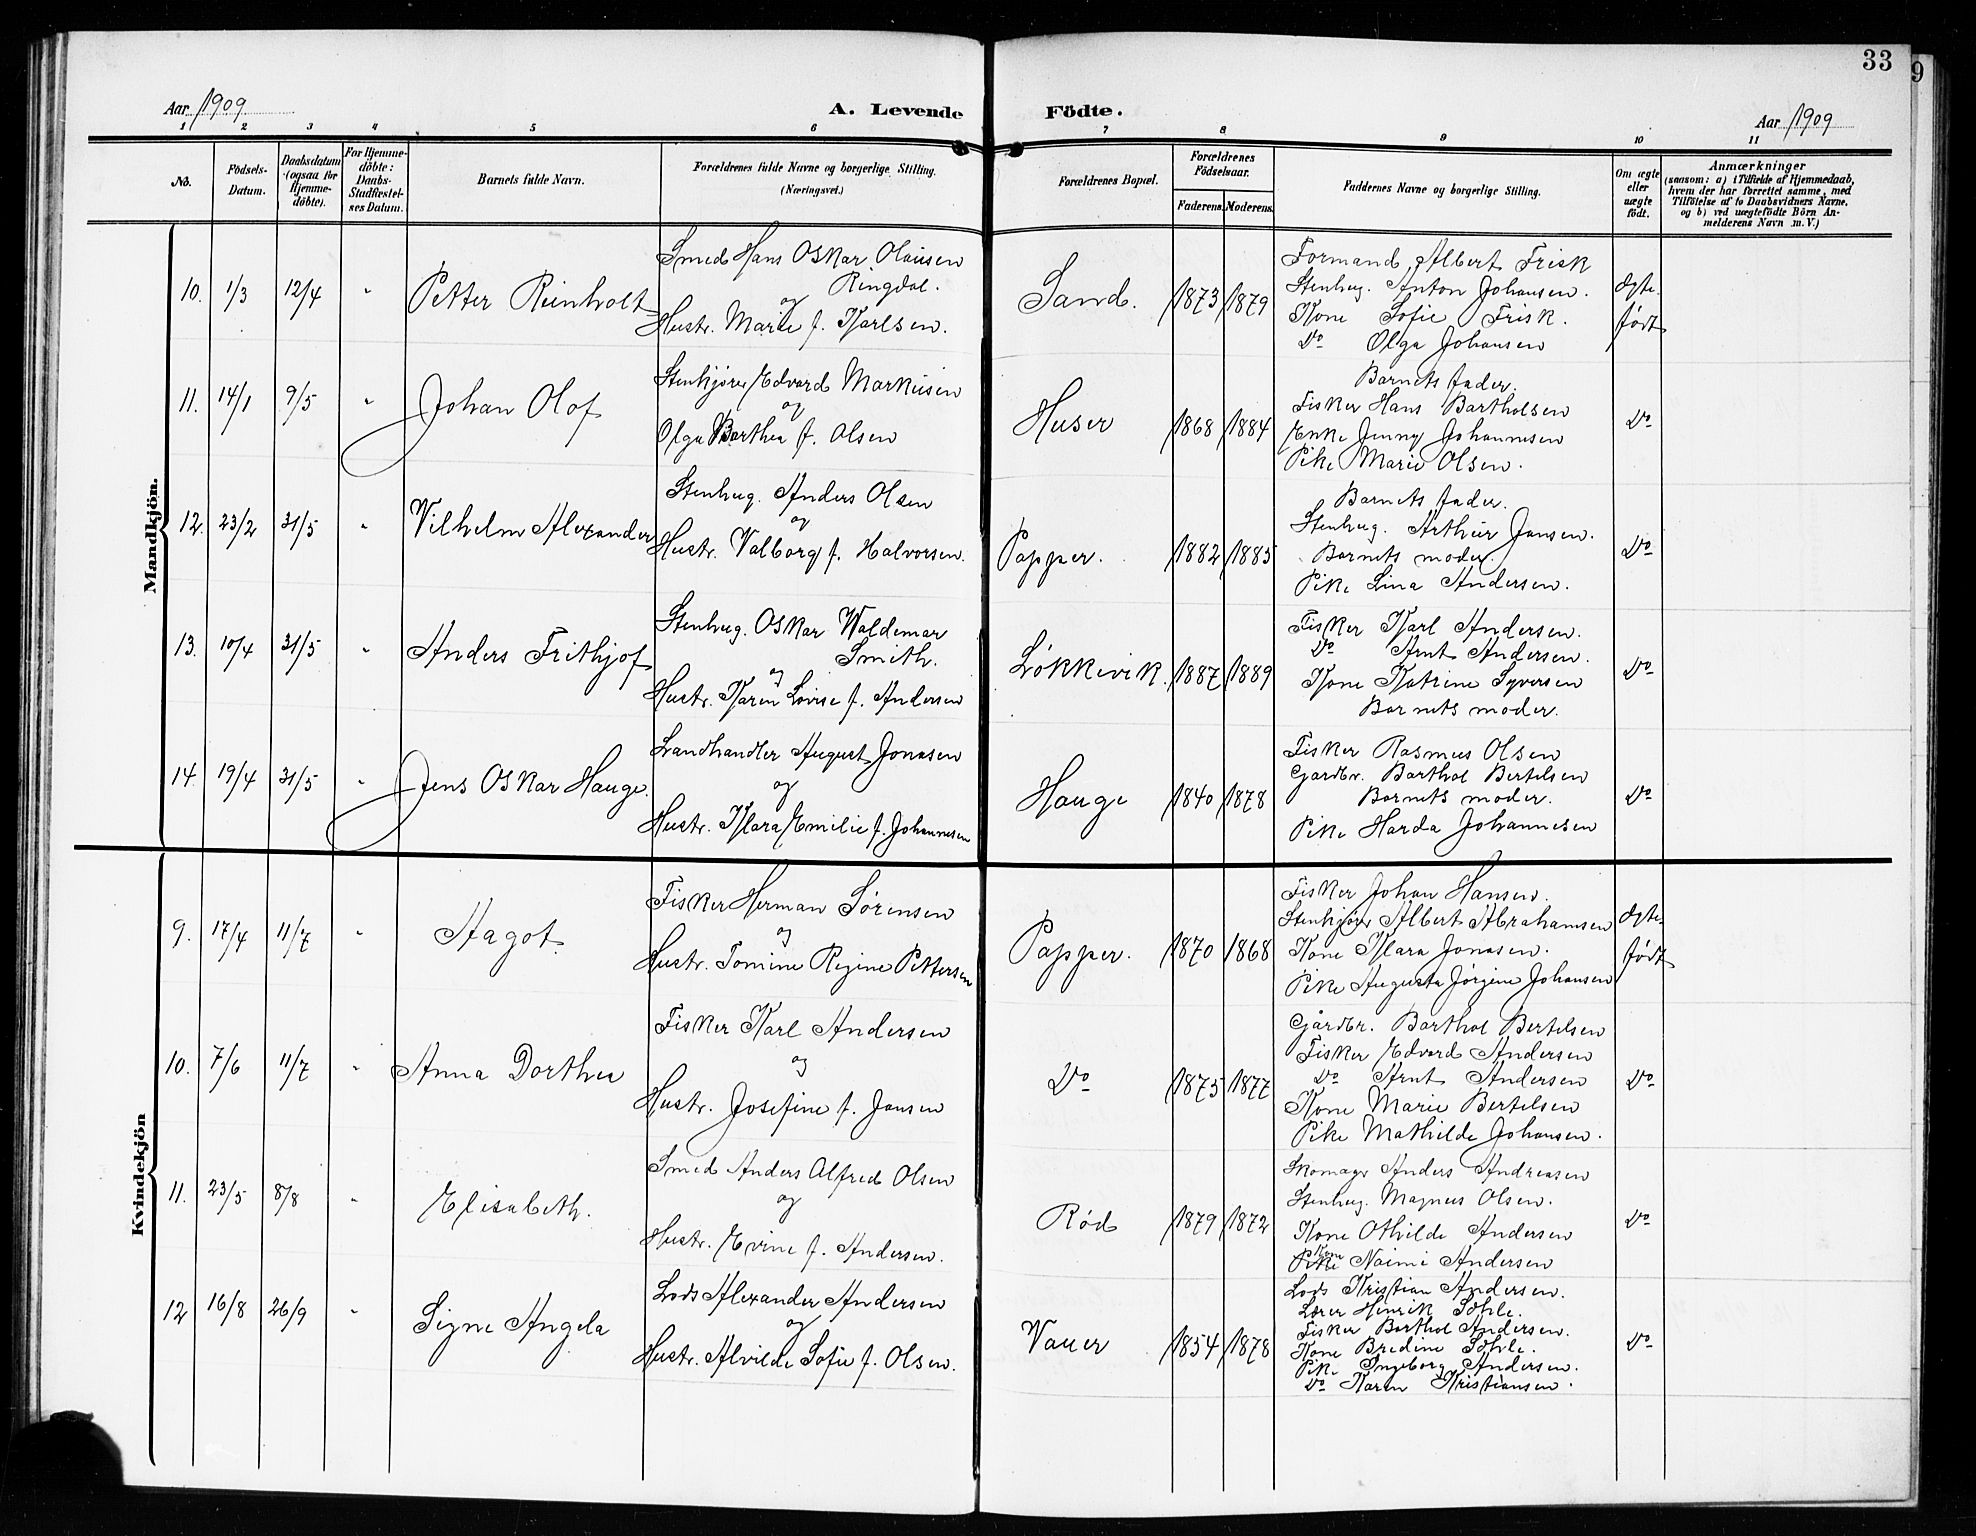 33
9
Aar 1909
A. Levende Födte.
Aar 1909
1 2 3 4 5 6 7 8 9 10 11
No.
Födsels-
Datum.
Daabsdatum
(ogsaa for
Hjemme-
döbte).
For Hjemme-
döbte:
Daabs-
Stadfæstel-
ses Datum.
Barnets fulde Navn.
Forældrenes fulde Navne og borgerlige Stilling.
(Næringsvei.)
Forældrenes Bopæl.
Forældrenes
Födselsaar.
Faderens. Moderens.
Faddernes Navne og borgerlige Stilling.
Om ægte
eller
uægte
födt.
Anmærkninger
(saasom: a) i Tilfælde af Hjemmedaab,
hvem der har forrettet samme, med
Tilföielse af to Daabsvidners Navne.
og b) ved uægtefödte Börn An-
melderens Navn m. V.)
Mandkjön.
10. 1/3 12/4 " Petter Reinholt
Smed Hans Oskar Olausen
Ringdal.
og
Hustr. Marie f. Karlsen.
Sand. 1873 1879
Formand Albert Frisk
Stenhug. Anton Johansen.
Kone Sofie Frisk.
Do Olga Johansen
ægte-
født
11. 14/1 9/5 " Johan Olof
Stenkjører Edvard Markusen
og
Olga Barthea f. Olsen
Huser 1868 1884
Barnets fader.
Fisker Hans Bartholsen
Enke Jenny Johannesen
Pike Marie Olsen.
Do
12. 23/2 31/5 " Vilhelm Alexander
Stenhug. Anders Olsen
og
Hustr. Valborg f. Halvorsen.
Papper. 1882 1885
Barnets fader.
Stenhug. Arthur Jansen.
Barnets moder.
Pike Lina Andersen.
Do
13. 10/4 31/5 " Anders Frithjof
Stenhug. Oskar Waldemar
Smith.
og
Hustr. Karen Lovise f. Andersen
Løkkevik. 1887 1889
Fisker Karl Andersen.
Do Arnt Andersen.
Kone Katrine Syversen
Barnets moder.
Do
14. 19/4 31/5 " Jens Oskar Hauge.
Landhandler August Jonasen
og
Hustr. Klara Emilie f. Johannesen
Hauge 1840 1878
Fisker Rasmus Olsen
Gardbr. Barthol Bertelsen
Barnets moder.
Pike Harda Johannesen
Do
Kvindekjön
9. 17/4 11/7 " Aagot.
Fisker Herman Sørensen
og
Hustr. Tomine Regine Pettersen
Papper. 1870 1868
Fisker Johan Hansen.
Stenkjører Albert Abrahamsen
Kone Klara Jonasen.
Pike Augusta Jørgine Johansen
ægte-
født
10. 7/6 11/7 " Anna Dorthea
Fisker Karl Andersen
og
Hustr. Josefine f. Jansen
Do 1875 1877
Gårdbr. Barthol Bertelsen
Fisker Edvard Andersen
Do Arnt Andersen
Kone Marie Bertelsen
Pike Mathilde Johansen.
Do
11. 23/5 8/8 " Elisabeth.
Smed Anders Alfred Olsen
og
Hustr. Evine f. Andersen.
Rød 1879 1872
Skomagr Anders Andreasen
Stenhug. Magnus Olsen.
Kone Othilde Andersen
Kone
Pike Naimi Andersen
Do
12 16/8 26/9 " Signe Angela
Lods Alexander Andersen
og
Hustr. Alvilde Sofie f. Olsen.
Vauer 1854 1878
Lods Kristian Andersen.
Lærer Hinrik Søhle.
Fisker Barthol Andersen.
Kone Bredine Søhle.
Pike Ingeborg Andersen.
Do Karen Kristiansen.
Do